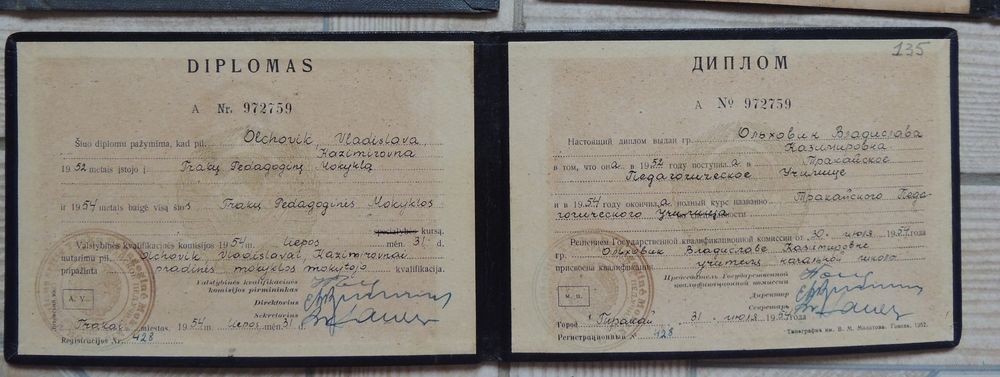 DIPLOMAS
A Nr. 972759
Šiuo diplomu pažymima, kad pil. Olchovik, Vladislava,
Kazimirovna
1952 metais įstojo į Trakų Pedagoginę Mokyklą
ir 1954 metais baigė visą šios Trakų Pedagoginės Mokyklos
kursą.
Valstybinės kvalifikacinės komisijos 1954 m. liepos mėn. 31 d.
nutarimu pil. Olchovik, Vladislavai, Kazimirovnai
pripažinta pradinės mokyklos mokytojo kvalifikacija.
Valstybinės kvalifikacinės
komisijos pirmininkas
Direktorius
A. V.
Sekretorius
Trakai miestas, 1954 m. liepos mėn. 31 d.
Registracijos Nr. 428
135
ДИПЛОМ
А № 972759
Настоящий диплом выдан гр. Ольховик Владислава
Казимировна
в том, что она в 1952 году поступила в Тракайское
Педагогическое Училище
и в 1954 году окончила полный курс названно Тракайского Педа-
гогического Училища
Решением Государственной квалификационной комиссии от 30 июля 1954 года
гр. Ольховик Владиславе Казимировне
присвоена квалификация учителя начальной школы
Председатель Государственной
квалификационной комиссии
Директор
М. П.
Секретарь
Город Тракай 31 июля 1954 года
Регистрационный № 428
Типография им. В. М. Молотова. Гознак. 1952.